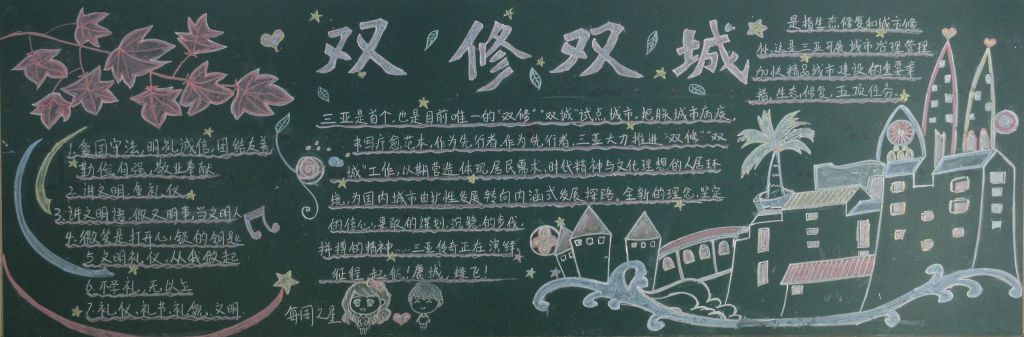 双修双城
1.爱国守法,明礼诚信,团结友善
勤俭自强,敬业奉献
2.讲文明重礼仪
3.讲文明语,做文明事,当文明人
4.微笑是打开心锁的钥匙
与文明礼仪,从我做起
6.不学礼,无以立
7.礼仪、礼节、礼貌、文明.
三亚是首个,也是目前唯一的“双修”“双城”试点城市.把脉城市病症,
书写疗愈范本.作为先行者,作为先行者,三亚大力推进“双修”“双
城”工作,以期营造体现居民需求、时代精神与文化理想的人居环
境,为国内城市由扩张发展转向内涵式发展探路.全新的理念,坚定
的信心,果敢的谋划,沉稳的步伐,
拼搏的精神……三亚传奇正在演绎,
征程,起航!鹿城,蝶飞!
每周之星
是指生态修复和城市修
补,这是三亚开展城市治理管理
加快精品城市建设的重要举
措,生态修复,五项任务.